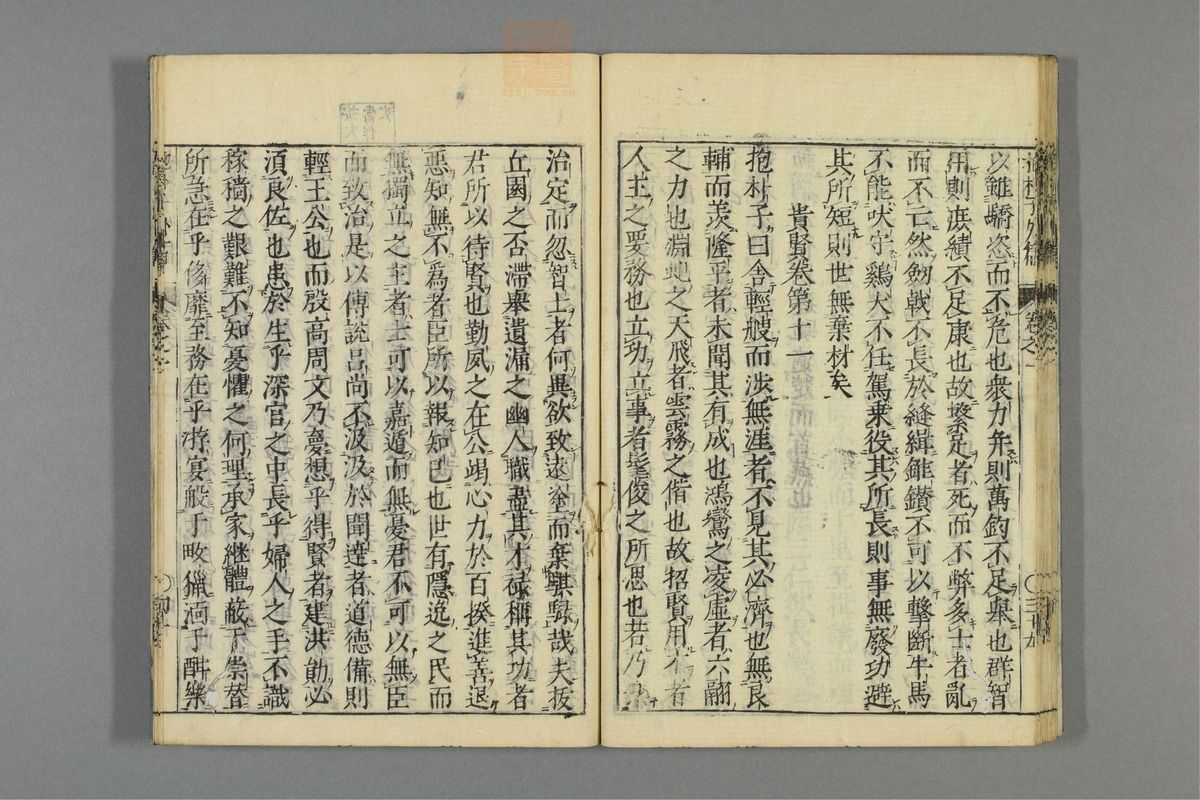 以離驕恣而不危也衆力并則萬鈞不足舉也群智
用則庶績不足康也故繁足者死而不弊多士者亂
而不亡然劔戟不長於縫緝錐鑚不可以擊斷牛馬
不能吠守鷄犬不任駕乗役其所長則事無廢功避
其所短則世無棄材矣
貴賢卷第十一
抱朴子曰舎輕艘而渉無涯者不見其必濟也無良
輔而羡隆平者未聞其有成也鴻鸞之凌虛者六翮
之力也淵虬之天飛者雲霧之偕也故招賢用才者
人主之要務也立功立事者髦俊之所思也若乃
治定而忽智士者何異欲致遠塗而棄騏騄哉夫抜
丘園之否滯舉遺漏之幽人職盡其才祿稱其功者
君所以待賢也勤夙之在公竭心力於百揆進善退
惡知無不爲者臣所以報知己也世有隱逸之民而
無獨立之主者士可以嘉遁而無憂君不可以無臣
而致治是以傅說呂尚不汲汲於聞達者道德備則
輕王公也而殷高周文乃夢想乎得賢者建洪勛必
湏良佐也患於生乎深宮之中長乎婦人之手不識
稼穡之艱難不知憂懼之何理承家継體蔽于崇替
所急在乎侈靡至務在乎游宴般于畋獵湎于酣樂